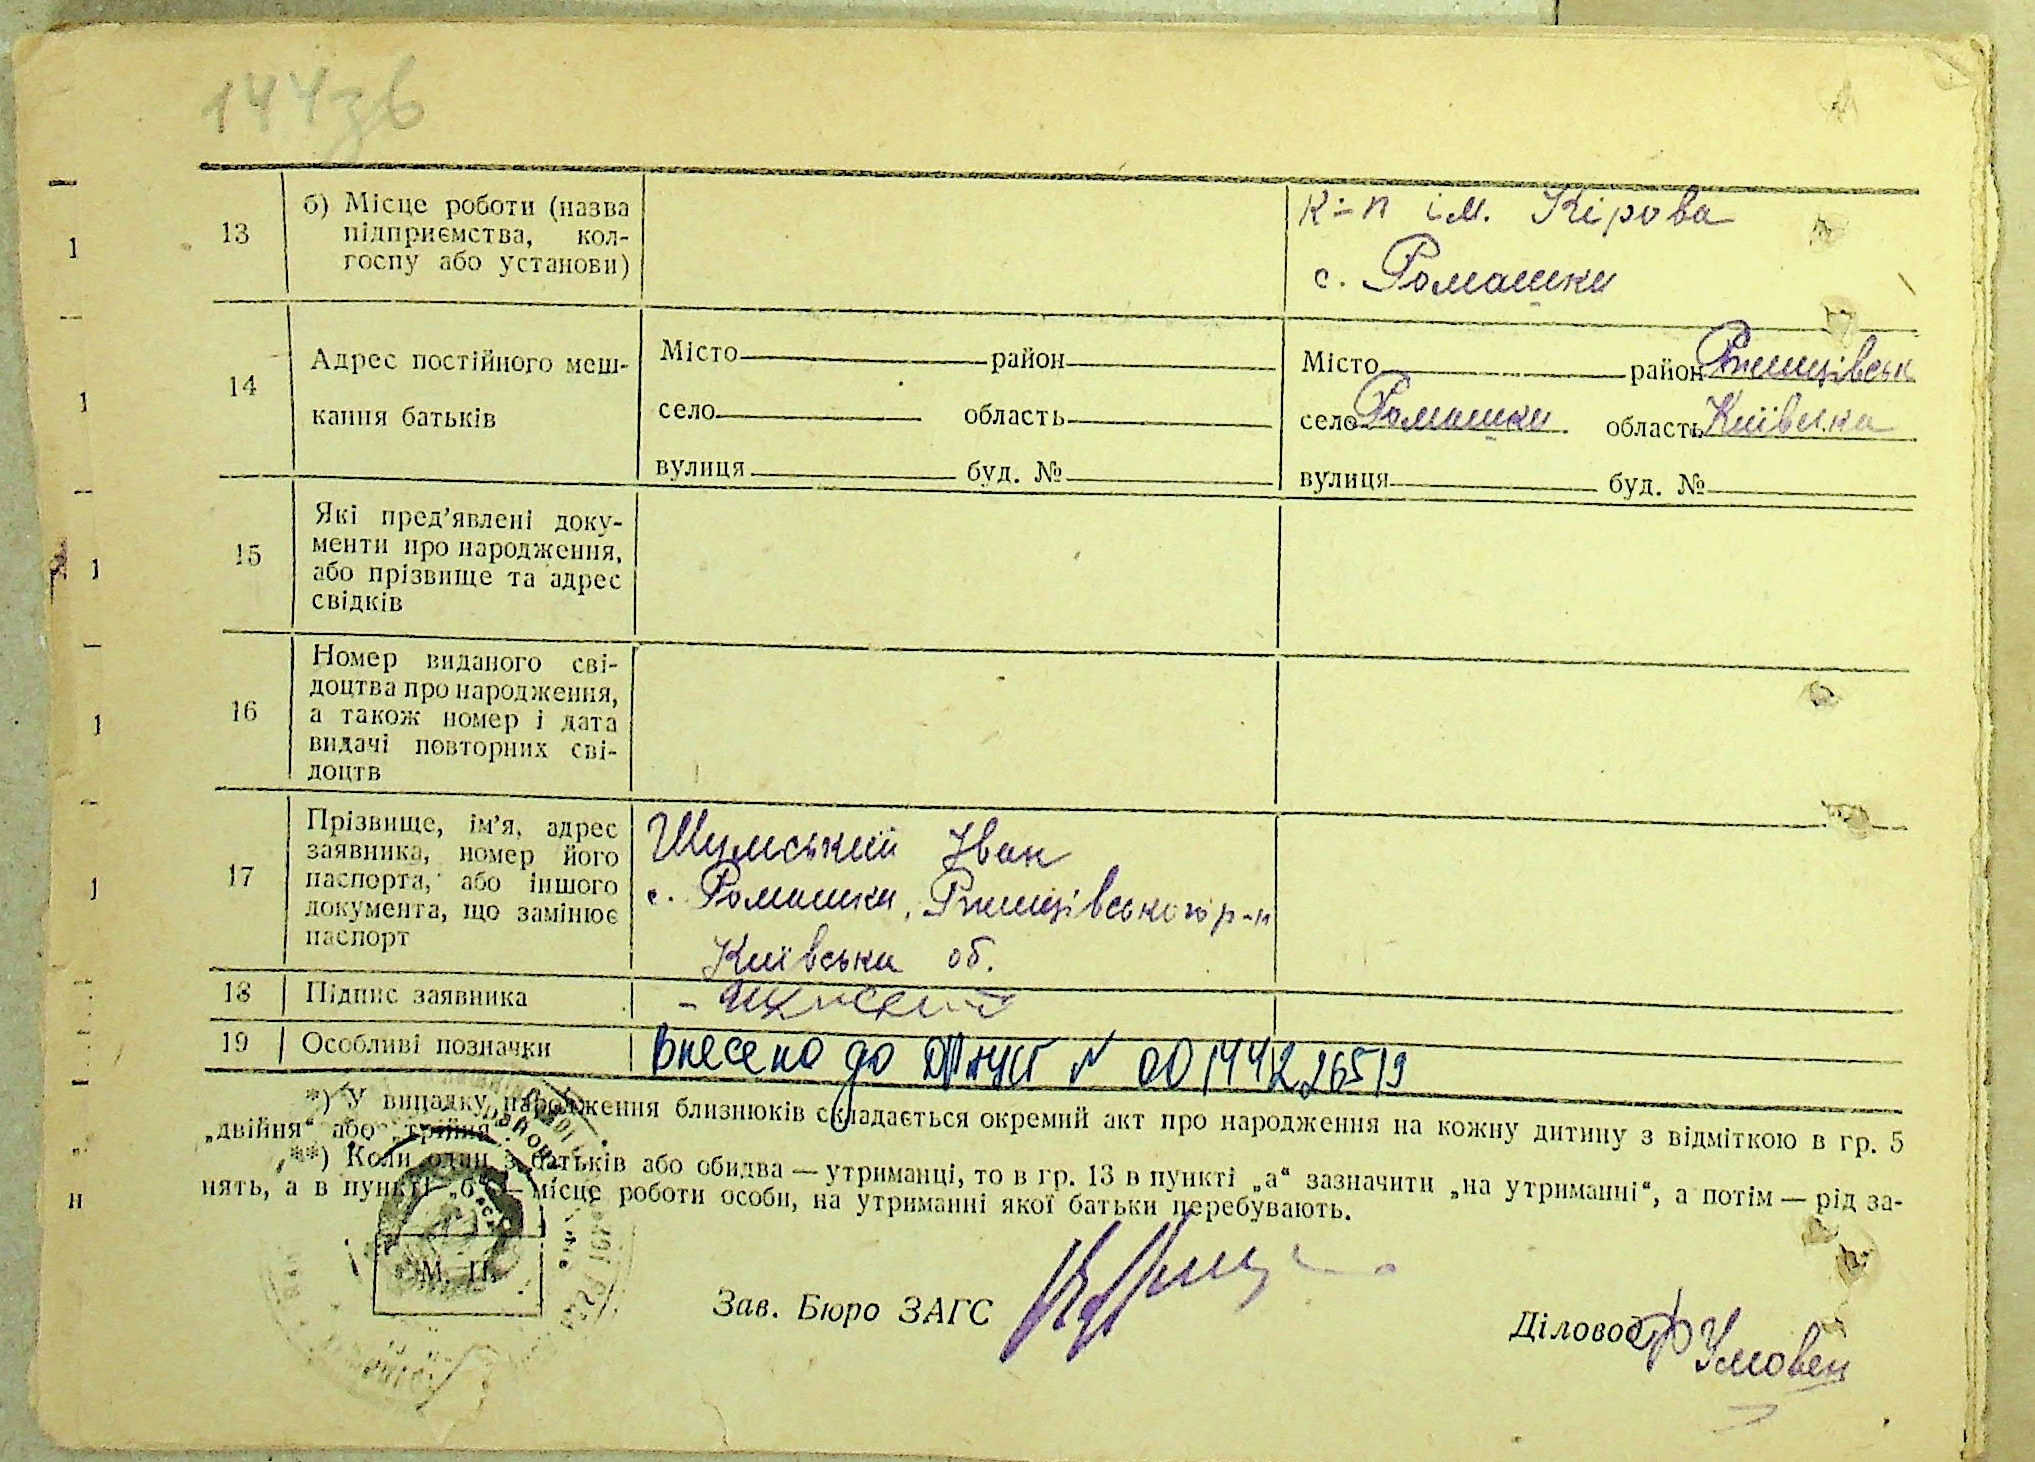 144зв
13
б) Місце роботи (назва
підприємства, кол-
госпу або установи)
к-п ім. Кірова
с. Ромашки
14
Адрес постійного меш-
кання батьків
Місто район
село область
вулиця буд. №
Місто район Ржищівськ
село Ромашки область Київська
вулиця буд. №
15
Які пред'явлені доку-
менти про народження,
або прізвище та адрес
свідків
16
Номер виданого сві-
доцтва про народження,
а також номер і дата
видачі повторних сві-
доцтв
17
Прізвище, ім'я, адрес
заявника, номер його
паспорта, або іншого
документа, що замінює
паспорт
Шумський Іван
с. Ромашки, Ржищівського р-н
Київська об.
18
Підпис заявника
19
Особливі позначки
Внесено до № 00144226519
*) У випадку народження близнюків складається окремий акт про народження на кожну дитину з відміткою в гр. 5
„двійня“ або „трійня“.
**) Коли один з батьків або обидва — утриманці, то в гр. 13 в пункті „а“ зазначити „на утриманні“, а потім — рід за-
нять, а в пункті „б“ — місце роботи особи, на утриманні якої батьки перебувають.
М. П.
Зав. Бюро ЗАГС
Діловод